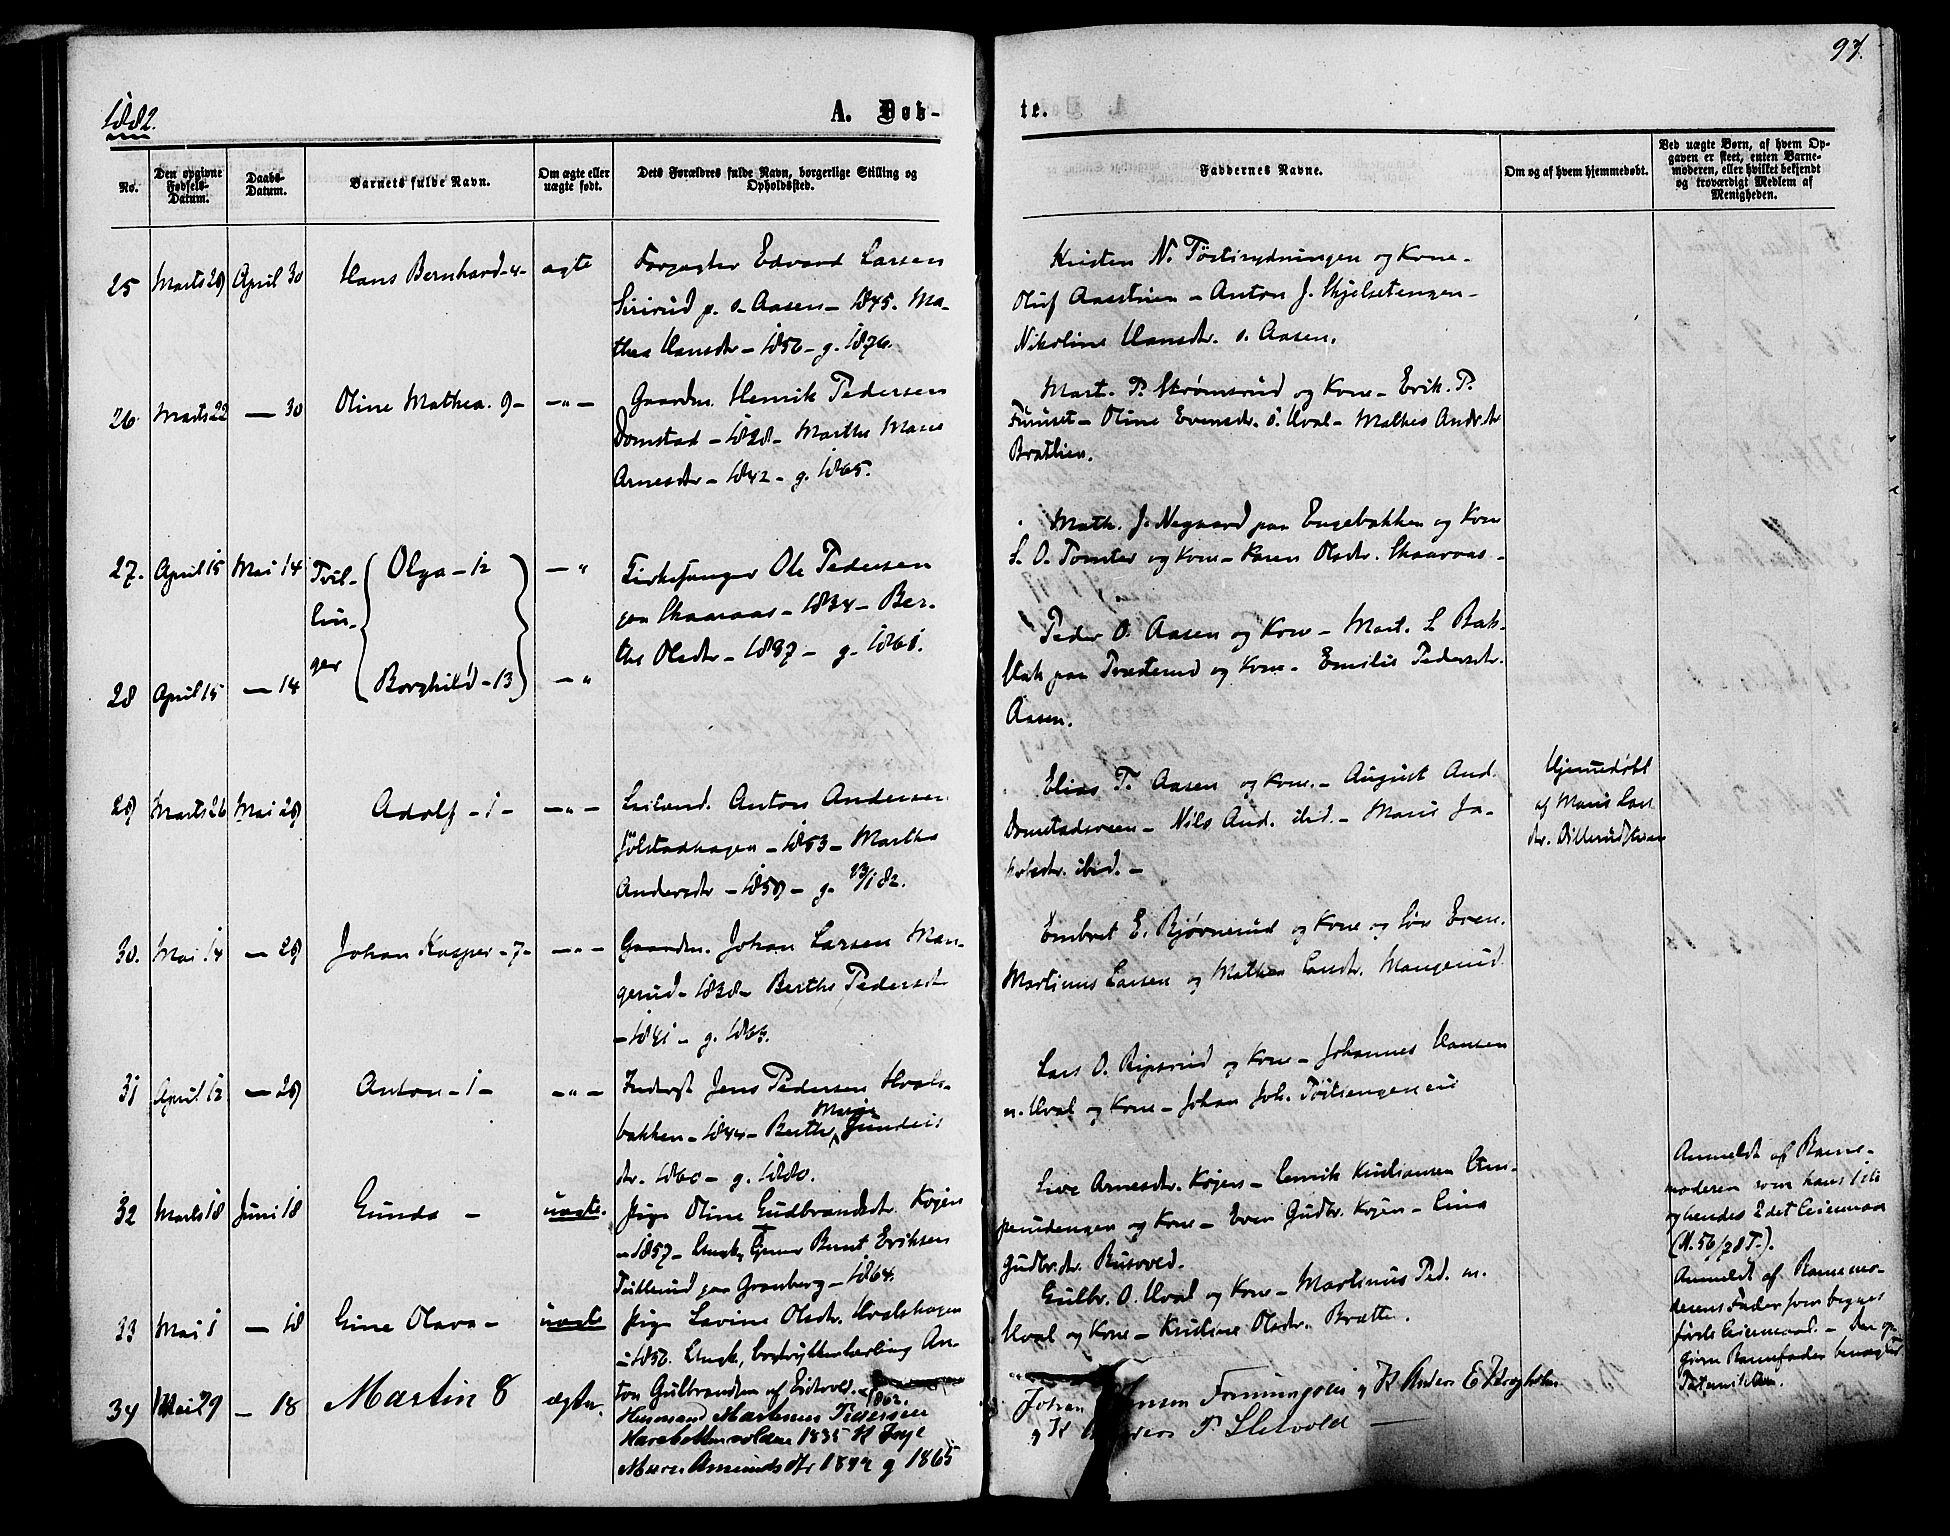 97.
1882.
A. Døb-
te.
No.
Den opgivne Fødsels-Datum.
Daabs-Datum.
Barnets fulde Navn.
Om ægte eller uægte født.
Dets Forældres fulde Navn, borgerlige Stilling og Opholdssted.
Faddernes Navne.
Om og af hvem hjemmedøbt.
Ved uægte Børn, af hvem Opgaven er skeet, enten Barnemoderen, eller hvilket bekjendt og troværdigt Medlem af Menigheden.
25 Marts 29 April 30 Hans Bernhard - 4 - ægte
Forpagter Edvard Larsen
p. s. Aasen - 1845. Ma-
thea Hansdtr - 1856 - g. 1876.
Kristen N. og Kone -
Oluf - Anton J. Skjelsetengen -
Nikoline Hansdtr. s. Aasen.
26 Marts 22 - 30 Oline Mathea. 9 - - " -
Gaardm. Henrik Pedersen
Domstad - 1828 - Marthe Marie
Arnesdtr - 1842 - g. 1865.
Mart. P. Strømsrud og Kone - Erik P.
Furuset - Oline Evensdr. s. Hval - Mathea Andr.dtr
Bratlien.
27. April 15 Mai 14 Tvil-
lin-
ger
Olga - 12 - "
Kirkesanger Ole Pedersen
paa Skaaraas - 1834 - Ber-
the Olsdtr - 1837 - g. 1861.
Math. J. Negaard paa Engebakken og Kone
L. O. Tomter og Kone - Karen Olsdtr. Skaaraas -
28 April 15 - 14 Borghild - 13 - "
Peder O. Aasen og Kone - Mart. L. Bak-
paa og Kone - Emilie Pedersdtr.
Aasen.
29 Marts 26 Mai 29 Adolf - 1 - - " -
Leilænd. Anton Andersen
Jølstadhagen - 1853 - Marthe
Andersdtr - 1859 - g. 23/1 82.
Elias P. Aasen og Kone. - August And.
Domstadsveen - Nils And. ibid. - Marie Ja-
kobsdtr. ibid. -
Hjemmedøbt
af Marie Lars
dtr.
30. Mai 14 - 29 Johan Kasper - 7 - - " -
Gaardm. Johan Larsen Man-
gerud - 1838 - Berthe Pedersdtr
- 1841 - g. 1864.
Embret E. Bjørnerud og Kone og Søn Even.
Martinus Larsen og Mathea Larsdtr. Mangerud.
31 April 12 - 29 Anton - 1 - - " -
Inderst Jens Pedersen Hvals-
bakken - 1844 - Berthe Marie Gunders
dtr. 1860 - g. 1880.
Lars O. Ripsrud og Kone - Johannes Hansen
n. Hval og Kone - Johan Joh.
32 Marts 18 Juni 18 Gunda - uægte.
Pige Oline Gudbrandsdtr. Kojen
- 1857 - Ungk. Tjener Bernt Eriksen
paa Granberg - 1864.
Live Arnesdtr. Kojen - Henrik Kristiansen
og Kone - Even Gudbr. Kojen - Lina
Gudbr.dtr. Rusvved.
Anmeldt af Barne-
moderen som hans 1ste
og hendes 2det Leiermaal
(N. 56/78 T.).
33 Mai 1 - 18 Gine Olava - uægte
Pige Lavine Olsdtr. Hvalshagen
- 1856. Ungk. bogtrykkerlærling An-
ton Gulbrandsen af Eidsvold - 1862.
Gulbr. O. Hval og Kone - Martinus Ped. n.
Hval og Kone - Kristine Olsdtr. Bratte.
Anmeldt af Barnemo-
derens Fader som begges
første Leiermaal. - Den op-
givne Barnefader benægter
34 Mai 29 - 18 Martin 8 ægte.
Husmand Martinus Pedersen
1835 K Inge
Marie Amundsdtr 1844 g 1865
Johan og K Anders E
og K P. Sletvold -